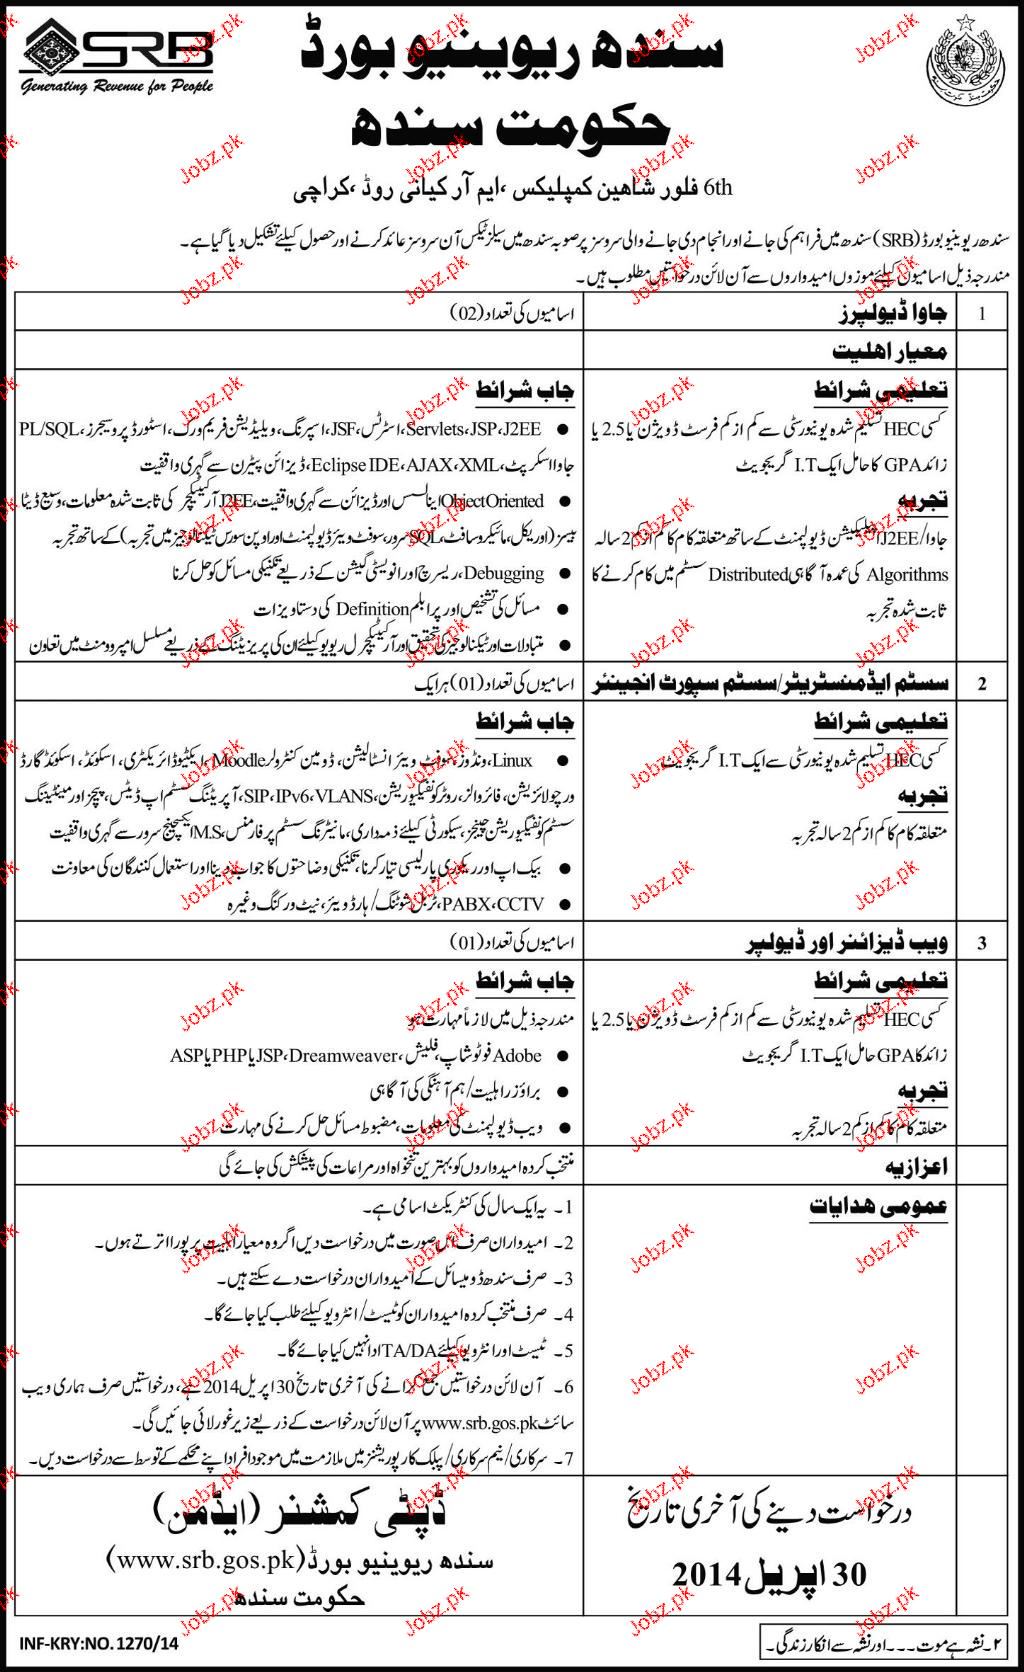 SRB
Generating Revenue for People
سندھ ریوینیو بورڈ
حکومت سندھ
6th فلور شاہین کمپلیکس، ایم آر کیانی روڈ، کراچی
سندھ ریوینیو بورڈ (SRB) سندھ میں فراہم کی جانے اور انجام دی جانے والی سروسز پر صوبہ سندھ میں سیلز ٹیکس آن سروسز عائد کرنے اور حصول کیلئے تشکیل دیا گیا ہے۔
مندرجہ ذیل اسامیوں کیلئے موزوں امیدواروں سے آن لائن درخواستیں مطلوب ہیں۔
1 جاوا ڈیولپرز اسامیوں کی تعداد (02)
معیار اہلیت
تعلیمی شرائط
کسی HEC تسلیم شدہ یونیورسٹی سے کم از کم فرسٹ ڈویژن یا 2.5 یا
زائد GPA کا حامل ایک I.T گریجویٹ
تجربہ
جاوا/J2EE اپلیکیشن ڈیولپمنٹ کے ساتھ متعلقہ کام کا کم از کم 2 سالہ
Algorithms کی عمدہ آگاہی Distributed سسٹم میں کام کرنے کا
ثابت شدہ تجربہ
جاب شرائط
● J2EE، JSP، Servlets، اسٹرٹس، JSF، اسپرنگ، ویلیڈیشن فریم ورک، اسٹورڈ پروسیجرز، PL/SQL،
جاوا اسکرپٹ، XML، AJAX، Eclipse IDE، ڈیزائن پیٹرن سے گہری واقفیت
● Object Oriented اینالسس اور ڈیزائن سے گہری واقفیت، J2EE آرکیٹیکچر کی ثابت شدہ معلومات، وسیع ڈیٹا
بیسز (اوریکل، مائیکروسافٹ، SQL سرور، سوفٹ ویئر ڈیولپمنٹ اور اوپن سورس ٹیکنالوجیز میں تجربہ) کے ساتھ تجربہ
● Debugging، ریسرچ اور انویسٹی گیشن کے ذریعے تکنیکی مسائل کو حل کرنا
● مسائل کی تشخیص اور پرابلم Definition کی دستاویزات
● متبادلات اور ٹیکنالوجیز کی تحقیق اور آرکیٹیکچرل ریویو کیلئے ان کی پریزنٹنگ کے ذریعے مسلسل امپروومنٹ میں تعاون
2 سسٹم ایڈمنسٹریٹر/سسٹم سپورٹ انجینئر اسامیوں کی تعداد (01) ہر ایک
تعلیمی شرائط
کسی HEC تسلیم شدہ یونیورسٹی سے ایک I.T گریجویٹ
تجربہ
متعلقہ کام کا کم از کم 2 سالہ تجربہ
جاب شرائط
● Linux، ونڈوز، سوفٹ ویئر انسٹالیشن، ڈومین کنٹرولر Moodle، ایکٹیو ڈائریکٹری، اسکوئڈ، اسکوئڈ گارڈ
ورچولائزیشن، فائر والز، روٹر کنفیگوریشن، SIP، IPv6، VLANS، آپریٹنگ سسٹم اپ ڈیٹس، پیچز اور مینٹیننگ
سسٹم کنفیگوریشن چینجز، سیکورٹی کیلئے ذمہ داری، مانیٹرنگ سسٹم پرفارمنس، M.S ایکسچینج سرور سے گہری واقفیت
● بیک اپ اور ریکوری پالیسی تیار کرنا، تکنیکی وضاحتوں کا جواب دینا اور استعمال کنندگان کی معاونت
● PABX، CCTV، ٹربل شوٹنگ/ہارڈ ویئر، نیٹ ورکنگ وغیرہ
3 ویب ڈیزائنر اور ڈیولپر اسامیوں کی تعداد (01)
تعلیمی شرائط
کسی HEC تسلیم شدہ یونیورسٹی سے کم از کم فرسٹ ڈویژن یا 2.5 یا
زائد کا GPA حامل ایک I.T گریجویٹ
تجربہ
متعلقہ کام کا کم از کم 2 سالہ تجربہ
جاب شرائط
مندرجہ ذیل میں لازماً مہارت ہو
● Adobe فوٹو شاپ، فلیش، Dreamweaver، JSP یا PHP یا ASP
● براؤزر اہلیت/ہم آہنگی کی آگاہی
● ویب ڈیولپمنٹ کی معلومات، مضبوط مسائل حل کرنے کی مہارت
اعزازیہ منتخب کردہ امیدواروں کو بہترین تنخواہ اور مراعات کی پیشکش کی جائے گی
عمومی ہدایات
1۔ یہ ایک سال کی کنٹریکٹ اسامی ہے۔
2۔ امیدواران صرف اس صورت میں درخواست دیں اگر وہ معیار اہلیت پر پورا اترتے ہوں۔
3۔ صرف سندھ ڈومیسائل کے امیدواران درخواست دے سکتے ہیں۔
4۔ صرف منتخب کردہ امیدواران کو ٹیسٹ/انٹرویو کیلئے طلب کیا جائے گا۔
5۔ ٹیسٹ اور انٹرویو کیلئے TA/DA ادا نہیں کیا جائے گا۔
6۔ آن لائن درخواستیں جمع کرانے کی آخری تاریخ 30 اپریل 2014 ہے، درخواستیں صرف ہماری ویب
سائٹ www.srb.gos.pk پر آن لائن درخواست کے ذریعے زیر غور لائی جائیں گی۔
7۔ سرکاری/نیم سرکاری/پبلک کارپوریشنز میں ملازمت میں موجود افراد اپنے محکمے کے توسط سے درخواست دیں۔
درخواست دینے کی آخری تاریخ
30 اپریل 2014
ڈپٹی کمشنر (ایڈمن)
سندھ ریوینیو بورڈ (www.srb.gos.pk)
حکومت سندھ
INF-KRY:NO. 1270/14
۲۔ نشہ ہے موت۔۔۔ اور نشہ سے انکار زندگی۔
Jobz.pk